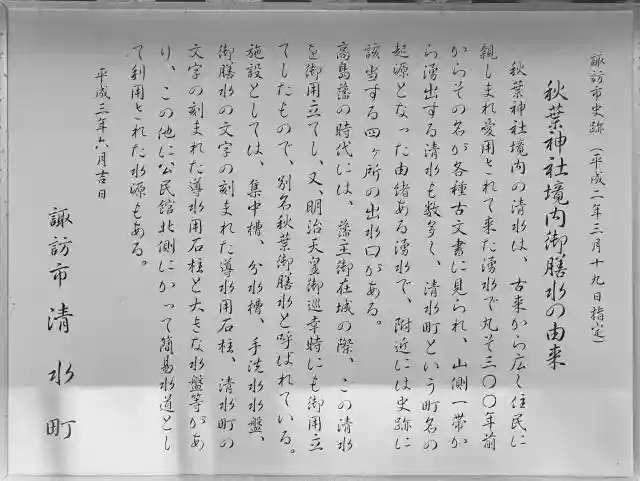 諏訪市史跡(平成二年三月十九日指定)
秋葉神社境内御膳水の由来
秋葉神社境内の清水は、古来から広く住民に
親しまれ愛用されて来た湧水で凡そ三〇〇年前
からその名が各種古文書に見られ、山側一帯か
ら湧出する清水も数多く、清水町という町名の
起源となった由緒ある湧水で、附近には史跡に
該当する四ヶ所の出水口がある。
高島藩の時代には、藩主御在城の際、この清水
を御用立てし、又、明治天皇御巡幸時にも御用立
てしたもので、別名秋葉御膳水と呼ばれている。
施設としては、集中槽、分水槽、手洗水水盤、
御膳水の文字の刻まれた導水用石柱、清水町の
文字の刻まれた導水用石柱と大きな水盤等があ
り、この他に公民館北側にかつて簡易水道とし
て利用された水源もある。
平成三年六月吉日
諏訪市清水町